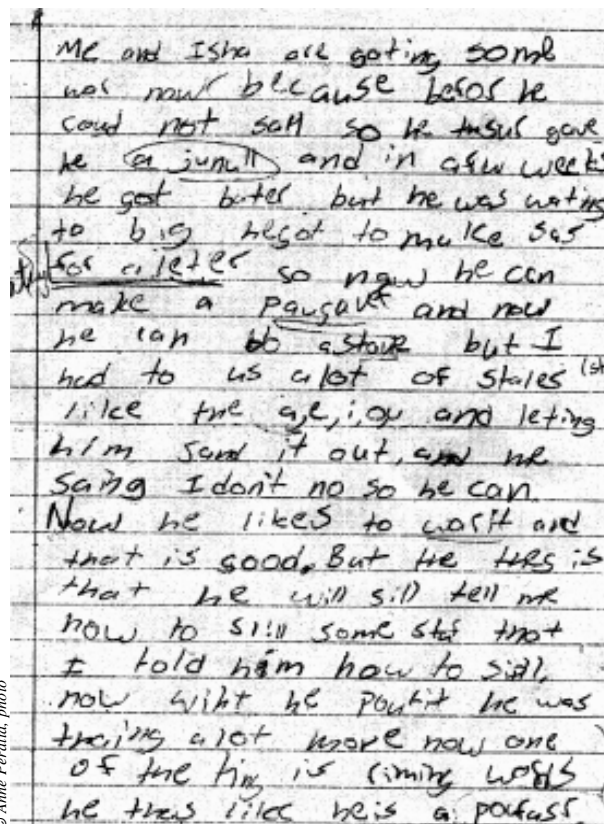 Me and Isha are gating some
now because befor he
coud not sall so he gave
he a junull and in a few weeks
he got bater but he was wating
to big hegot to make sas
for a leter so now he can
make a and now
he can do a store but I
had to us alot of states (st
like the a,e,i,ou and leting
him sand it out, and me
saing I don't no so he can.
Now he likes to and
that is good. But the is
that he will sill tell me
how to sill some staf that
I told him how to sill,
now wiht he he was
traing alot more now one
of the ting is riming words
he likes heis a
© Anne Peralta, photo